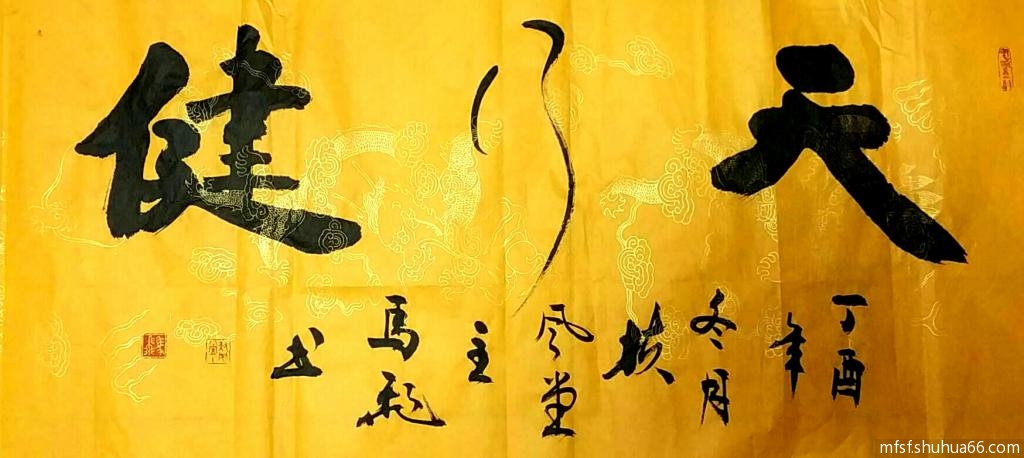 天行健
丁酉
年
冬月
扶
风堂
主
馬飛
书
mfsf.shuhua66.com